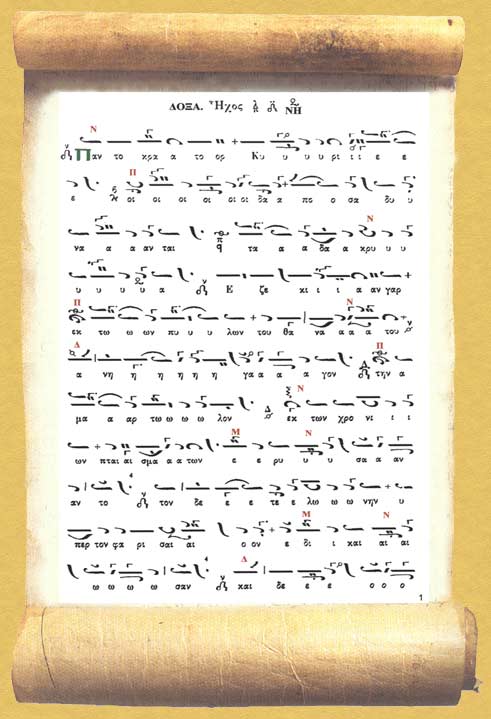 ΔΟΞΑ. Ἦχος ΝΗ
Παν το κρα α το ορ Κυ υ υ υ ρι ι ι ε ε
ε οι οι οι οι οι δα α πο ο σα δυ υ
να α α αν ται τα α α δα α κρυ υ υ
υ υ υ υ α Ε ζε κι ι ι α αν γαρ
εκ τω ω ων πυ υ υ λων του θα να α α α του
α νη η η η η η γα α α α γον την α
μα α αρ τω ω ω ω λον εκ των χρο νι ι ι
ων πται αι σμα α α των ε ε ρυ υ υ σα α αν
αν το τον δε ε ε τε ε λω ω ω νην υ
περ τον φα ρι σαι αι ο ον ε δι ι και αι αι
ω ω ω ω σαν και δε ε ε ο ο ο
1